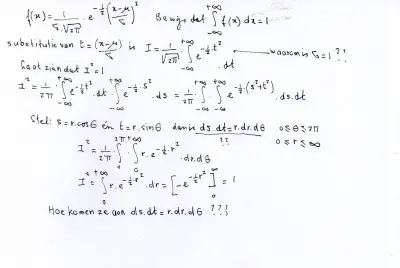 f(x) = 1/(σ.√2π) . e^(-½(x-μ/σ)²) Bewijs dat ∫_{-∞}^{+∞} f(x) dx = 1
substitutie van t = (x-μ/σ) is I = 1/√2π ∫_{-∞}^{+∞} e^(-½t²) . dt ← waarom is σ = 1 ??
Laat zien dat I² = 1
I² = 1/2π . ∫_{-∞}^{+∞} e^(-½t²) . dt . ∫_{-∞}^{+∞} e^(-½.s²) . ds = 1/2π . ∫_{-∞}^{+∞} ∫_{-∞}^{+∞} e^(-½(s²+t²)) . ds.dt
Stel: s = r.cosθ én t = r.sinθ dan is ds.dt = r.dr.dθ 0 ≤ θ ≤ 2π
?? 0 ≤ r ≤ ∞
I² = 1/2π . ∫_0^{2π} ∫_0^{+∞} r. e^(-½.r²) . dr.dθ
I² = ∫_0^{+∞} r. e^(-½.r²) . dr = [-e^(-½r²)]_0^∞ = 1
Hoe komen ze aan ds.dt = r.dr.dθ ???